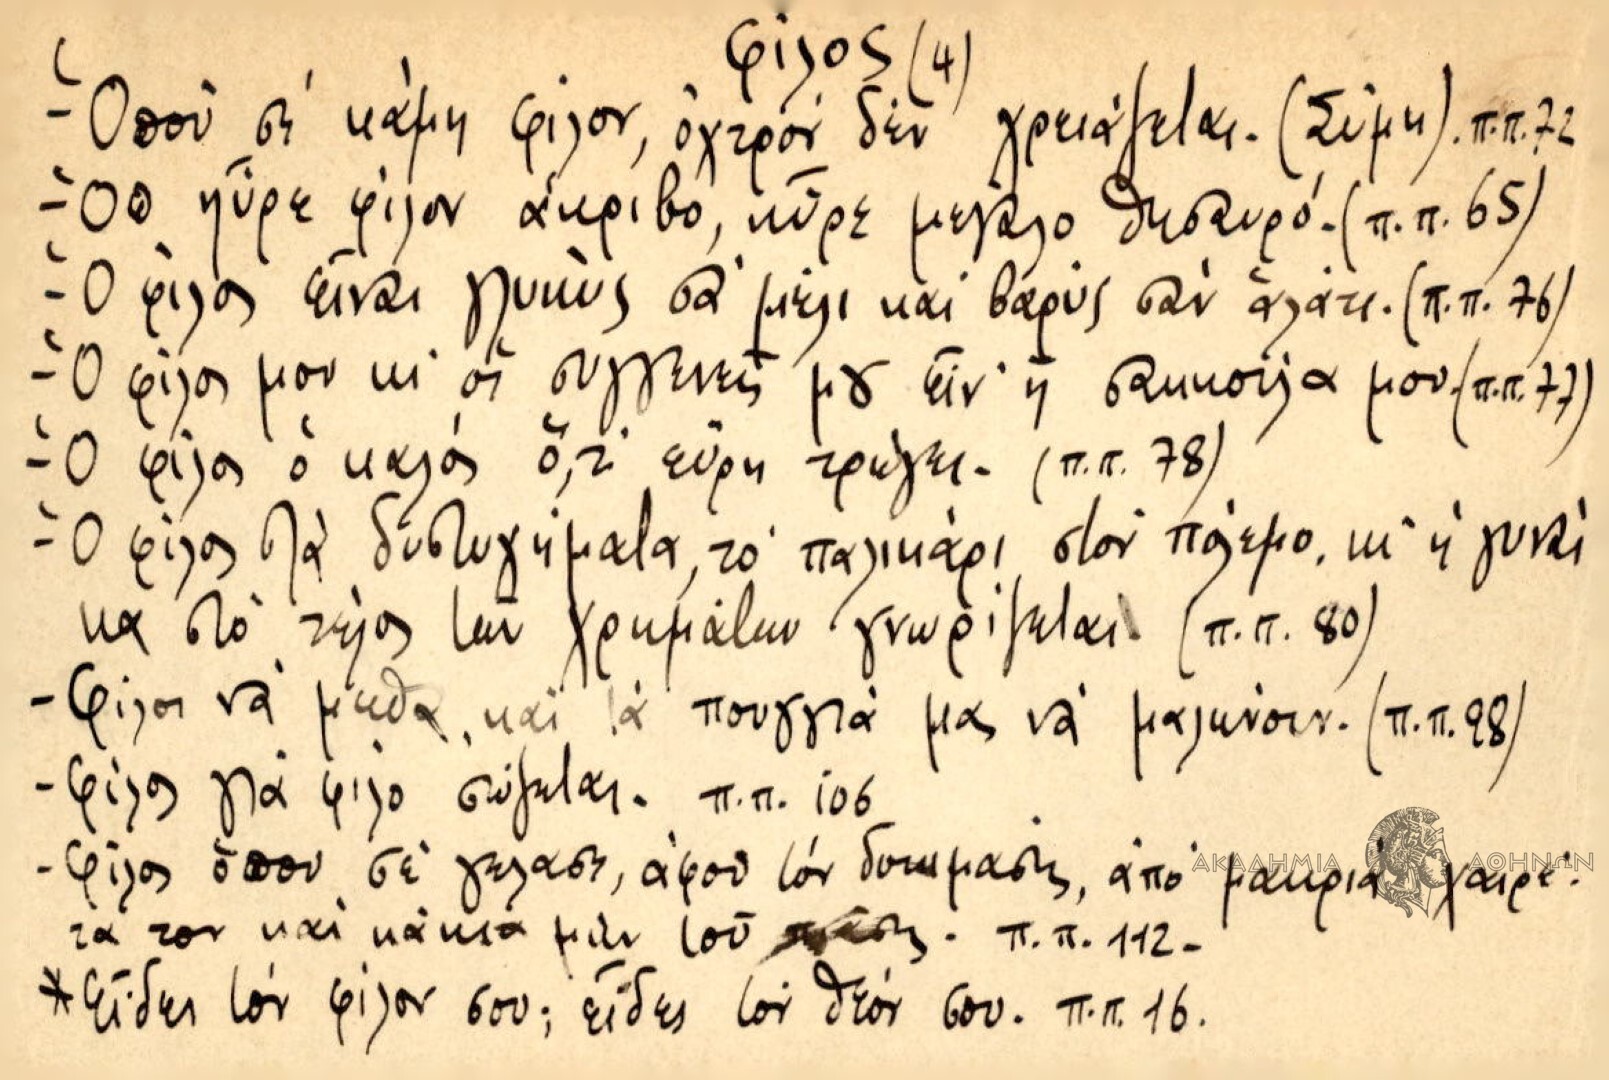 φίλος (4)
- Ὁποὺ σὲ κάμῃ φίλον, ὀχτρὸν δὲν χρειάζεται. (Σύμη). π.π. 72
- Ὁπ ηὗρε φίλον ἀκριβό, ηὗρε μεγάλο θησαυρό. (π.π. 65)
- Ὁ φίλος εἶναι γλυκὺς σὰ μέλι καὶ βαρὺς σὰν ἁλάτι. (π.π. 76)
- Ὁ φίλος μου κι οἱ συγγενεῖς μου εἶν' ἡ σακκούλα μου. (π.π. 77)
- Ὁ φίλος ὁ καλὸς ὅ,τι εὕρῃ τρώγει. (π.π. 78)
- Ὁ φίλος στὰ δυστυχήματα, τὸ παλικάρι στὸν πόλεμο, κι ἡ γυναί
κα στὸ τέλος τῶν χρημάτων γνωρίζεται. (π.π. 80)
- Φίλοι νὰ μεθα, καὶ τὰ πουγγιά μας νὰ μαλώνουν. (π.π. 98)
- Φίλος γιὰ φίλο σώζεται. π.π. 106
- Φίλος ὅπου σὲ γελάσῃ, ἀφοῦ τὸν δοκιμάσῃς, ἀπὸ μακριὰ χαιρέ-
τα τον καὶ κάκια μὴν τοῦ π.π. 112-
* Εἶδες τὸν φίλον σου; εἶδες τὸν θεόν σου. π.π. 16.
ΑΚΑΔΗΜΙΑ ΑΘΗΝΩΝ